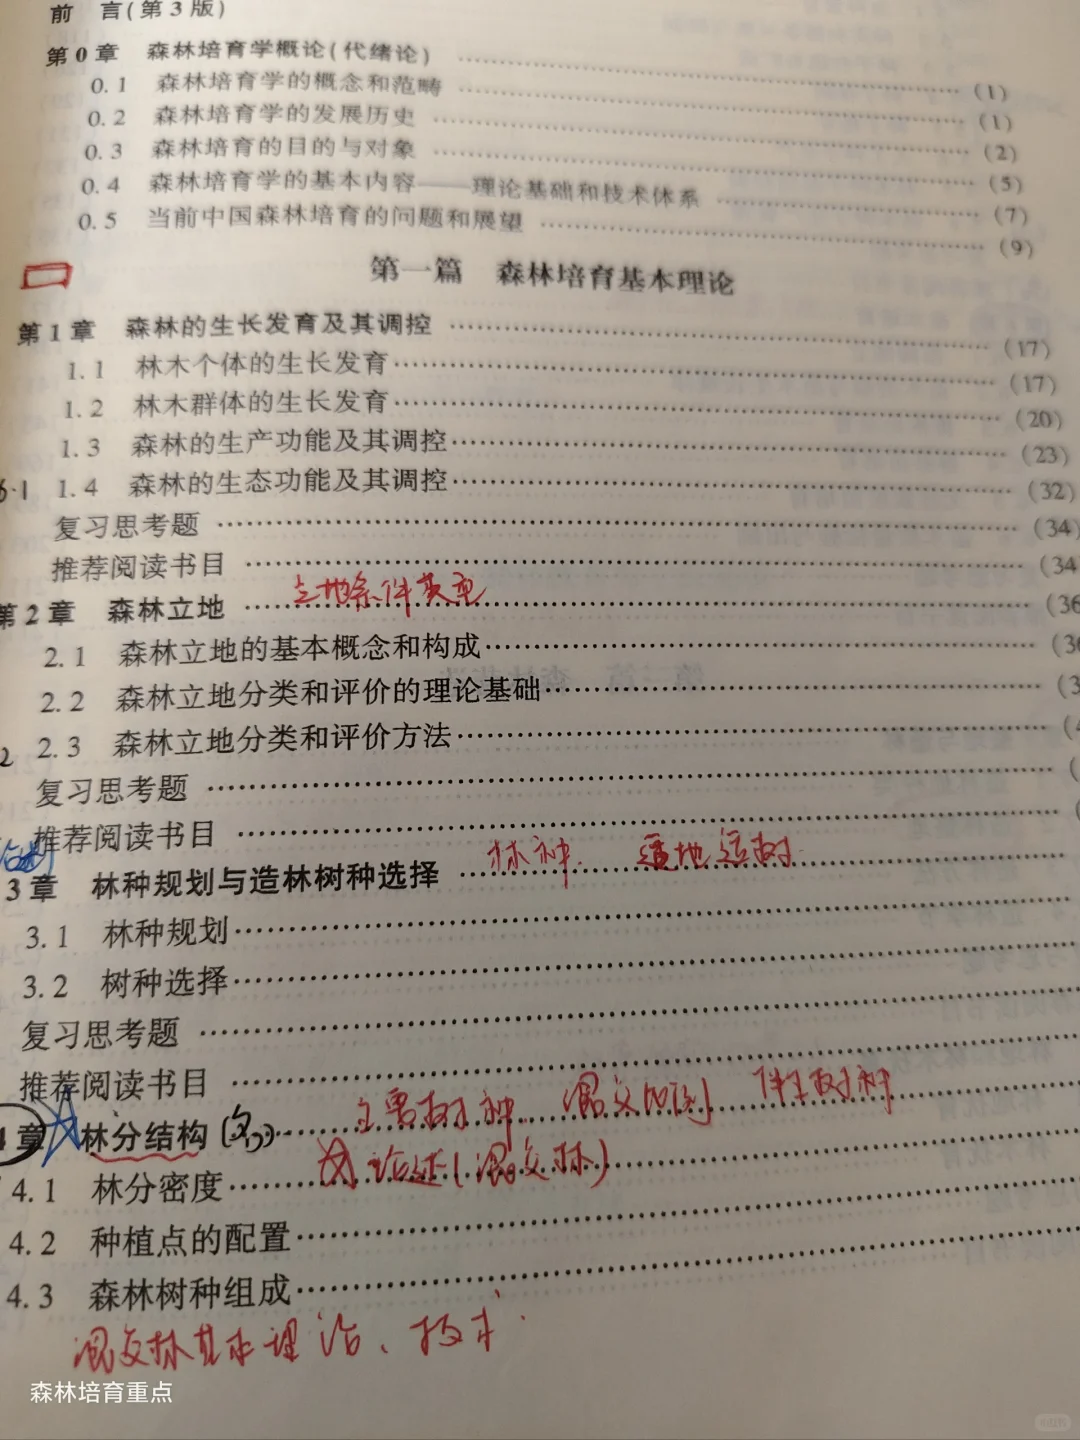 前 言(第3版)
第0章 森林培育学概论(代绪论)
0.1 森林培育学的概念和范畴 (1)
0.2 森林培育学的发展历史 (1)
0.3 森林培育的目的与对象 (2)
0.4 森林培育学的基本内容——理论基础和技术体系 (5)
0.5 当前中国森林培育的问题和展望 (7)
(9)
第一篇 森林培育基本理论
第1章 森林的生长发育及其调控 (17)
1.1 林木个体的生长发育 (17)
1.2 林木群体的生长发育 (20)
1.3 森林的生产功能及其调控 (23)
1.4 森林的生态功能及其调控 (32)
复习思考题 (34)
推荐阅读书目 (34
立地条件类型
第2章 森林立地 (36
2.1 森林立地的基本概念和构成 (36
2.2 森林立地分类和评价的理论基础 (3
2.3 森林立地分类和评价方法 (4
复习思考题 (
推荐阅读书目
林种. 适地适树
3章 林种规划与造林树种选择
3.1 林种规划
3.2 树种选择
复习思考题
推荐阅读书目
主要树种 混交比例 伴生树种
4章 林分结构
论述(混交林)
4.1 林分密度
4.2 种植点的配置
4.3 森林树种组成
混交林基本理论、技术
森林培育重点